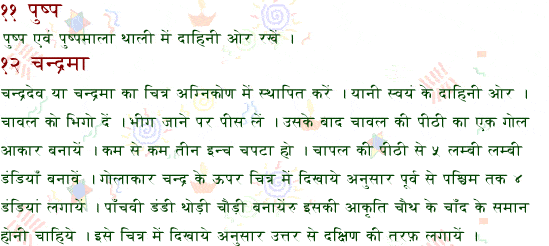 ११ पुष्प
पुष्प एवं पुष्पमाला थाली में दाहिनी ओर रखें ।
१२ चन्द्रमा
चन्द्रदेव या चन्द्रमा का चित्र अग्निकोण में स्थापित करें । यानी स्वयं के दाहिनी ओर ।
चावल को भिगो दें । भीग जाने पर पीस लें । उसके बाद चावल की पीठी का एक गोल
आकार बनायें । कम से कम तीन इन्च चपटा हो । चापल की पीठी से ५ लम्बी लम्बी
डंडियाँ बनावें । गोलाकार चन्द्र के ऊपर चित्र में दिखाये अनुसार पूर्व से पश्चिम तक ४
डंडियां लगायें । पाँचवी डंडी थोड़ी चौड़ी बनायेंरु इसकी आकृति चौथ के चाँद के समान
होनी चाहिये । इसे चित्र में दिखाये अनुसार उत्तर से दक्षिण की तरफ़ लगायें ।